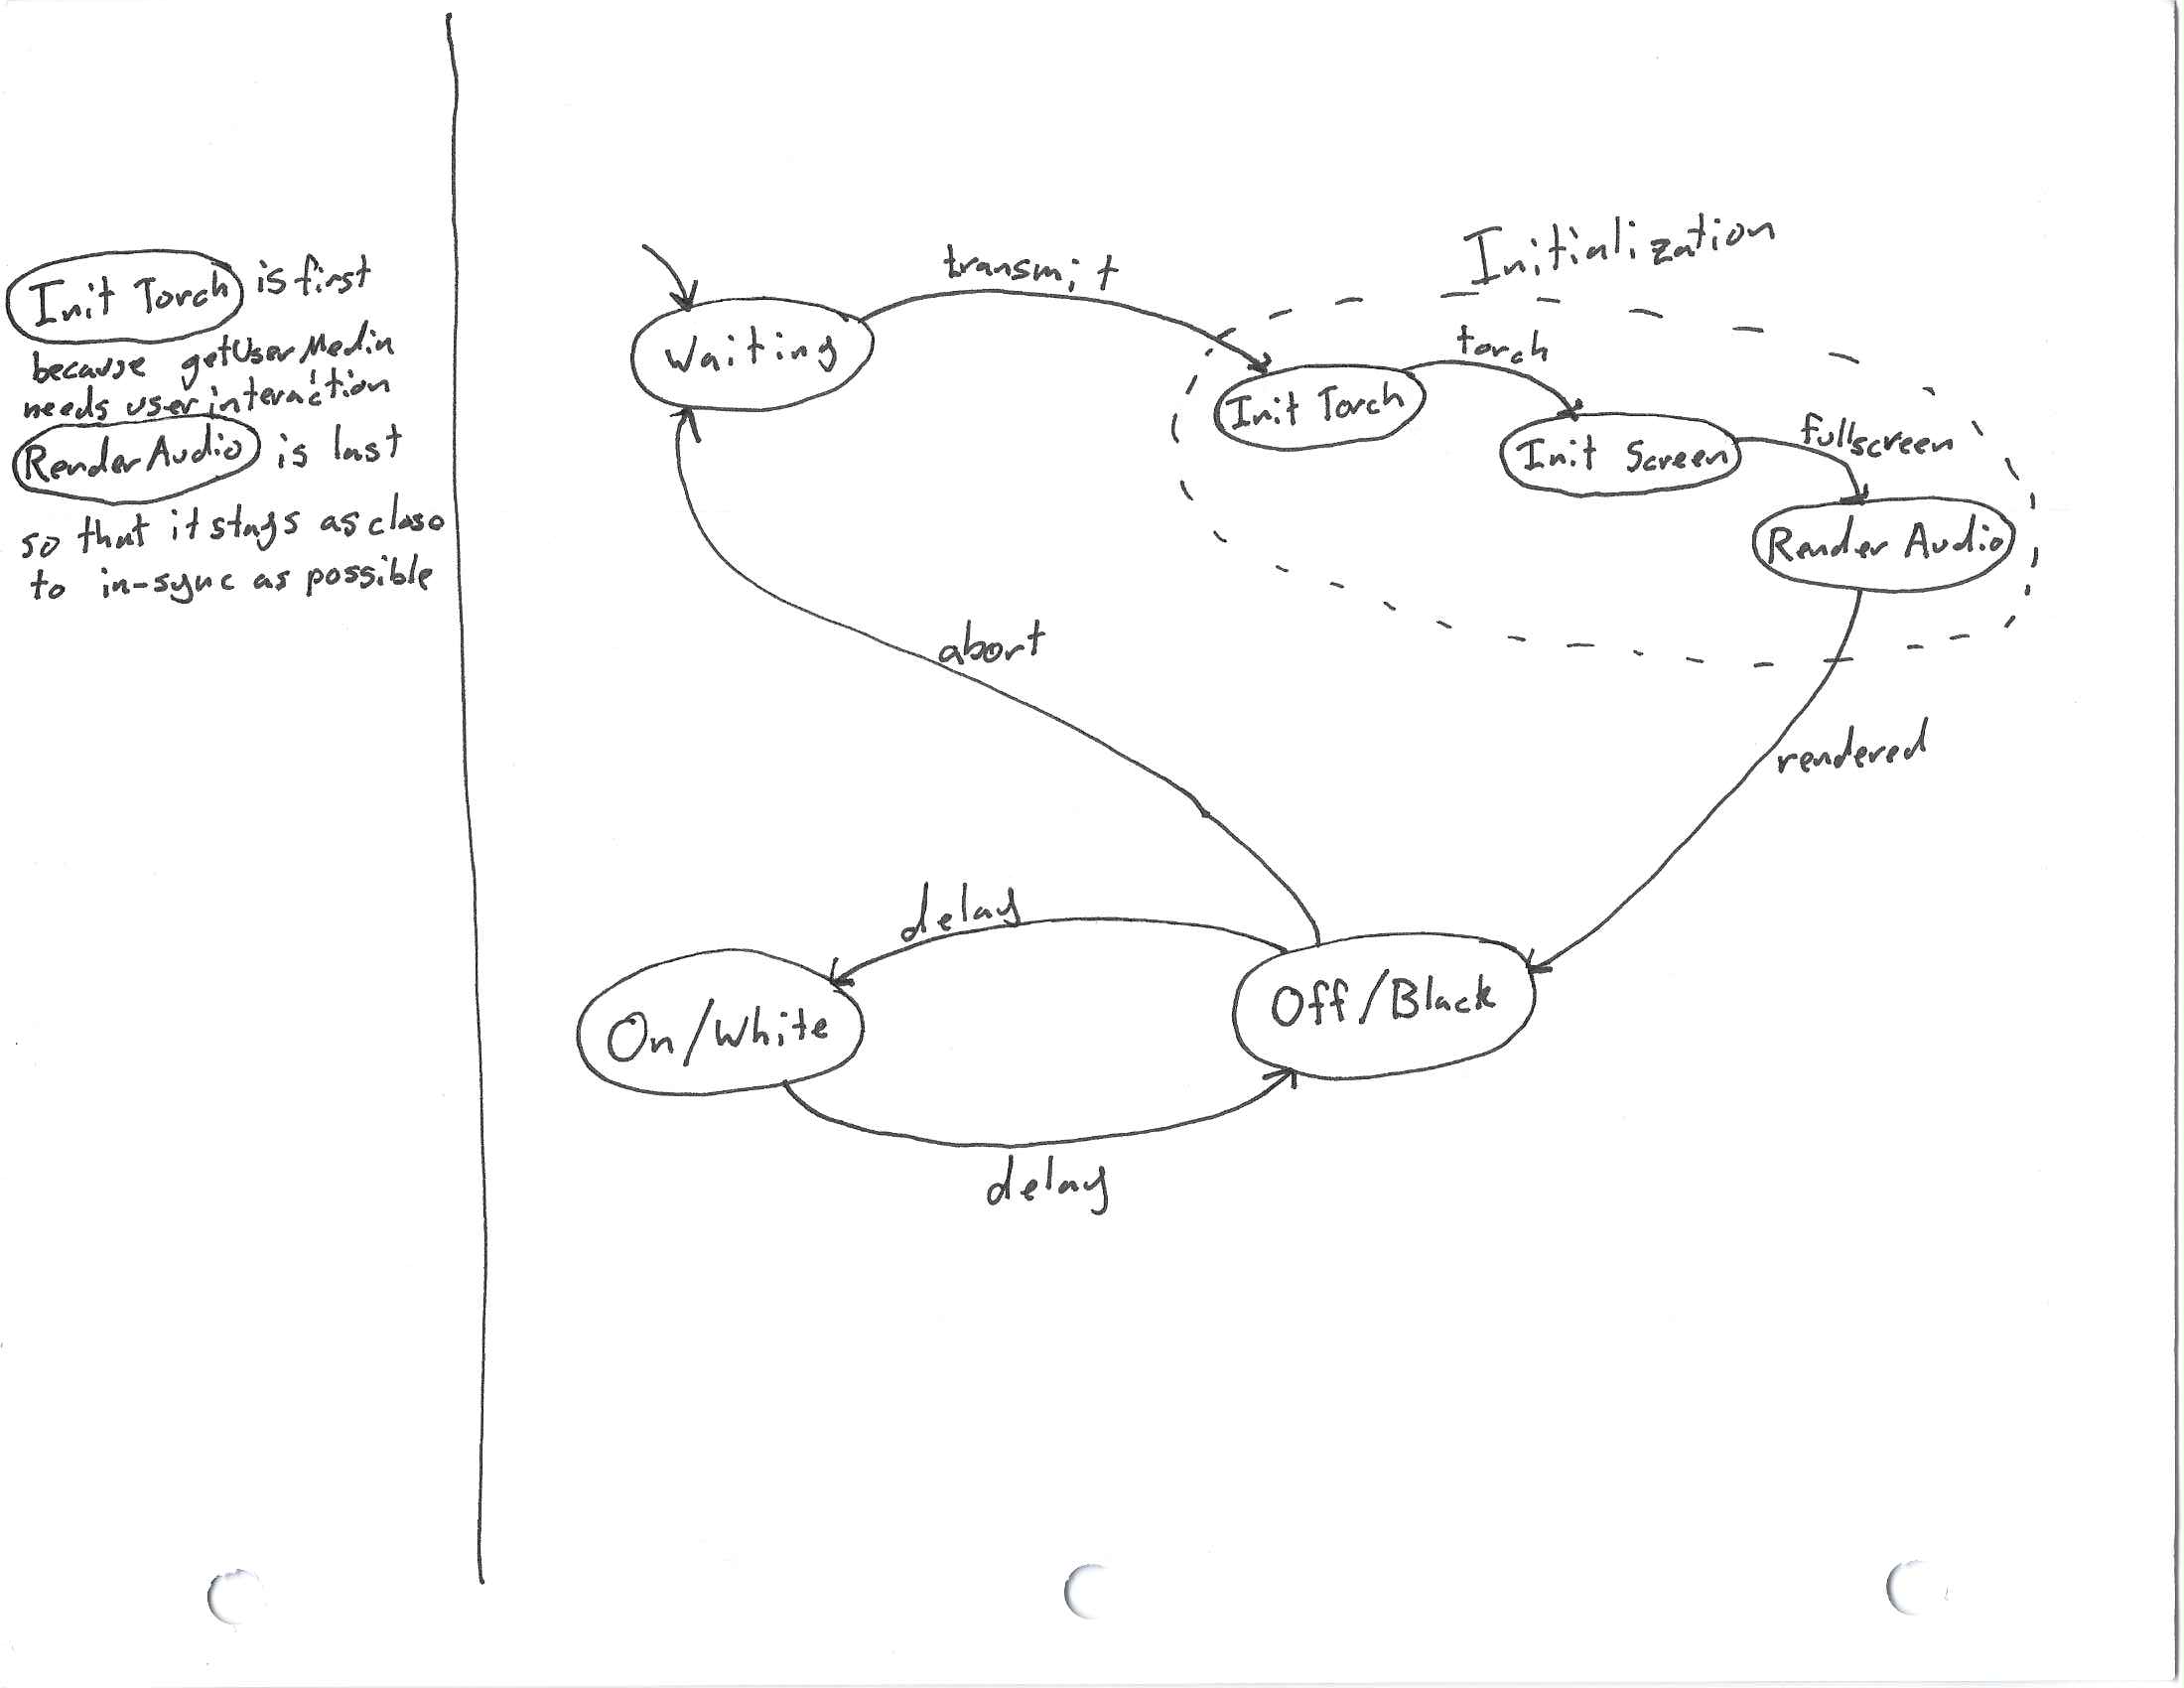 Init Torch is first
because getUserMedia
needs user interaction
Render Audio is last
so that it stays as close
to in-sync as possible
Initialization
transmit
Waiting
torch
Init Torch
fullscreen
Init Screen
Render Audio
abort
rendered
delay
Off/Black
On/White
delay